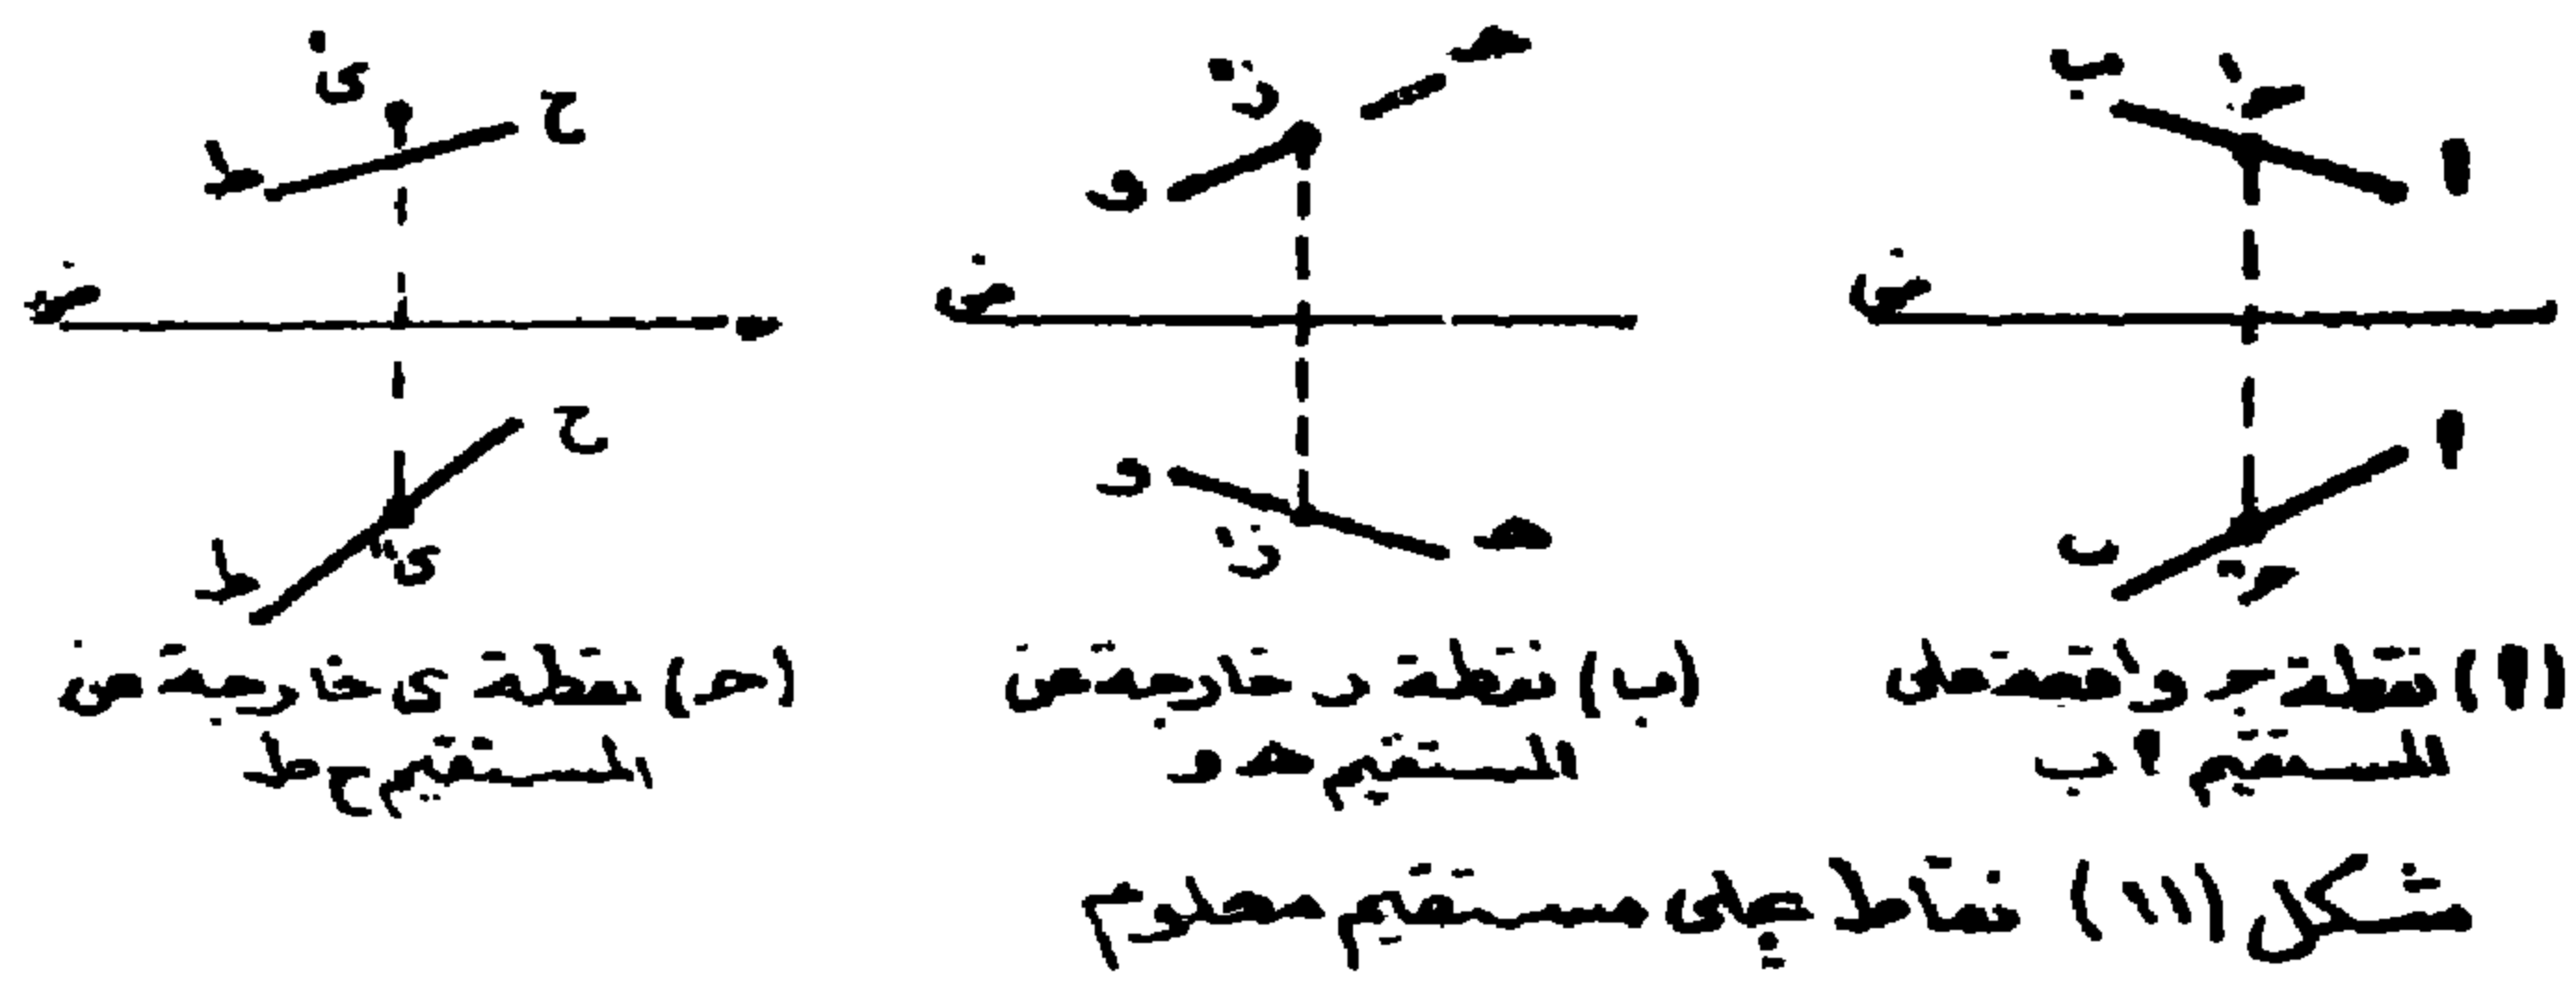 ب جَ ا
ض
ا
ب جـً
(ا) نقطة جـ واقعة على
المستقيم ا ب
هـ
زً
و
ض
و
زَ هـ
(ب) نقطة ز خارجة عن
المستقيم هـ و
يَ
ح
ط
ض
ح
ط يً
(حـ) نقطة ى خارجة عن
المستقيم ح ط
شكل (١١) نقاط على مستقيم معلوم